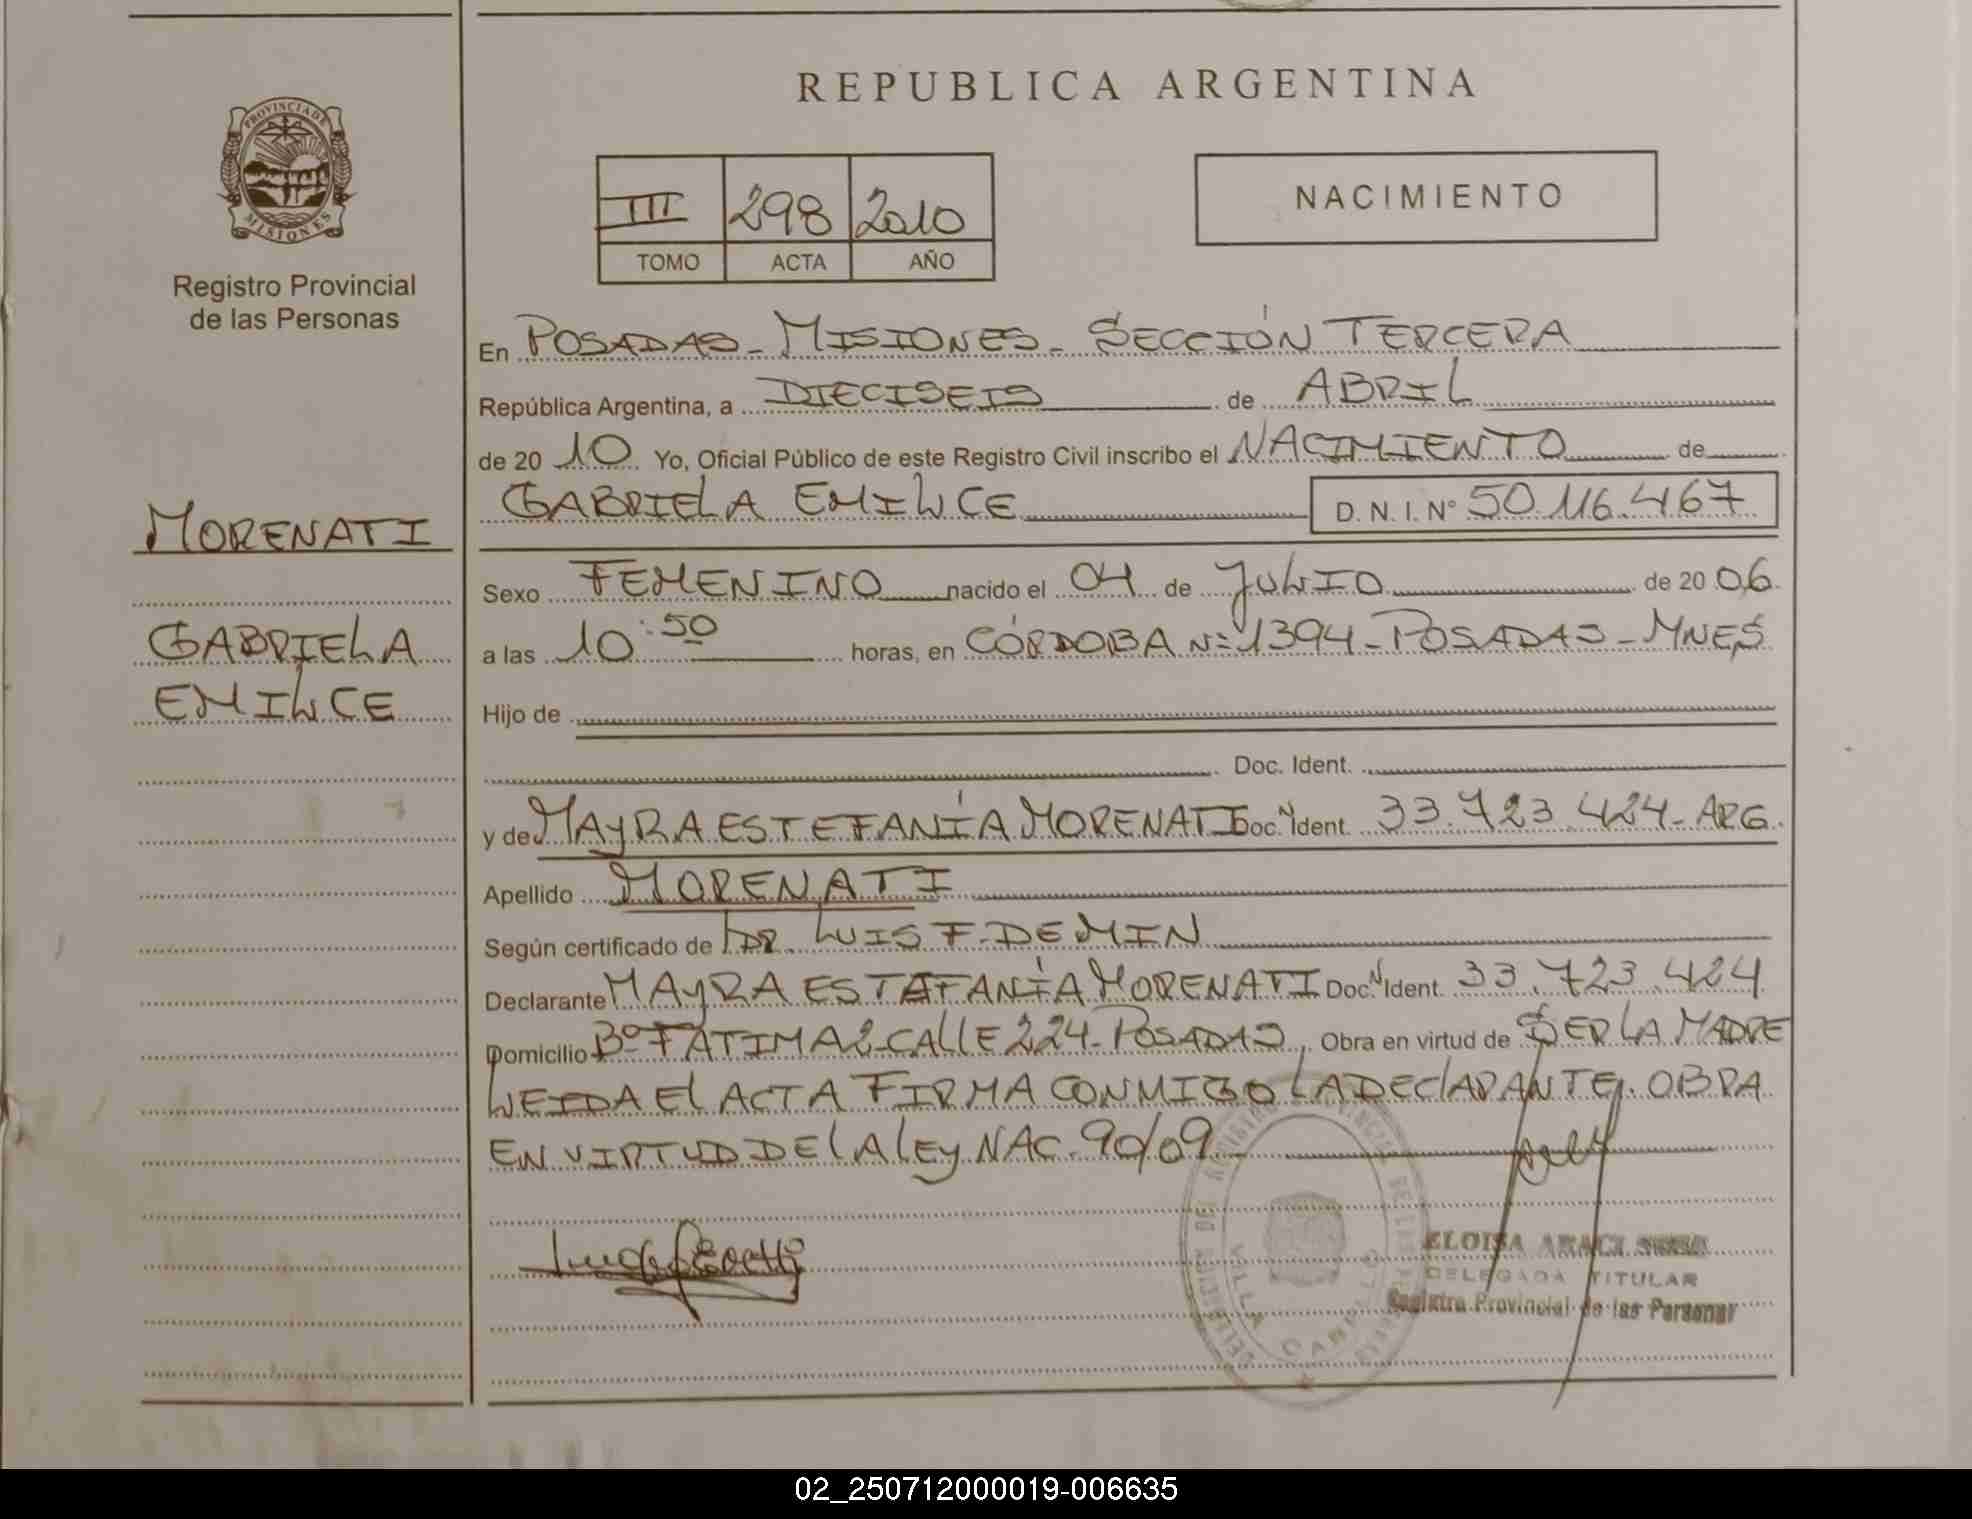 REPUBLICA ARGENTINA
PROVINCIA DE
MISIONES
Registro Provincial
de las Personas
III 298 2010
TOMO ACTA AÑO
NACIMIENTO
En POSADAS - MISIONES - SECCIÓN TERCERA
República Argentina, a DIECISEIS de ABRIL
de 20 10 Yo, Oficial Público de este Registro Civil inscribo el NACIMIENTO de
GABRIELA EMILCE D. N. I. N° 50.116.467
MORENATI
GABRIELA
EMILCE
Sexo FEMENINO nacido el 04 de JULIO de 20 06
a las 10:50 horas, en CÓRDOBA N= 1394 - POSADAS - MNES
Hijo de
Doc. Ident.
y de MAYRA ESTEFANÍA MORENATI Doc. Ident. 33.723.424 - ARG.
Apellido MORENATI
Según certificado de DR. LUIS F. DEMIN
Declarante MAYRA ESTAFANÍA MORENATI Doc. Ident. 33.723.424
Domicilio B° FÁTIMA 2 - CALLE 224 - POSADAS, Obra en virtud de SER LA MADRE
LEIDA EL ACTA FIRMA CONMIGO LA DECLARANTE. OBRA
EN VIRTUD DE LA LEY NAC. 90/09
ELOISA
DELEGADA TITULAR
Registro Provincial de las Personas
VILLA CABELLO
02_250712000019-006635